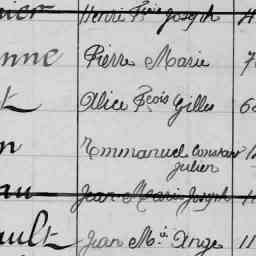 Henri Fçois Joseph
nne Pierre Marie
t Alice Fçois Gilles
n Emmanuel Constant
Julien
au Jean Marie Joseph
ault Jean M.ie Ange 11